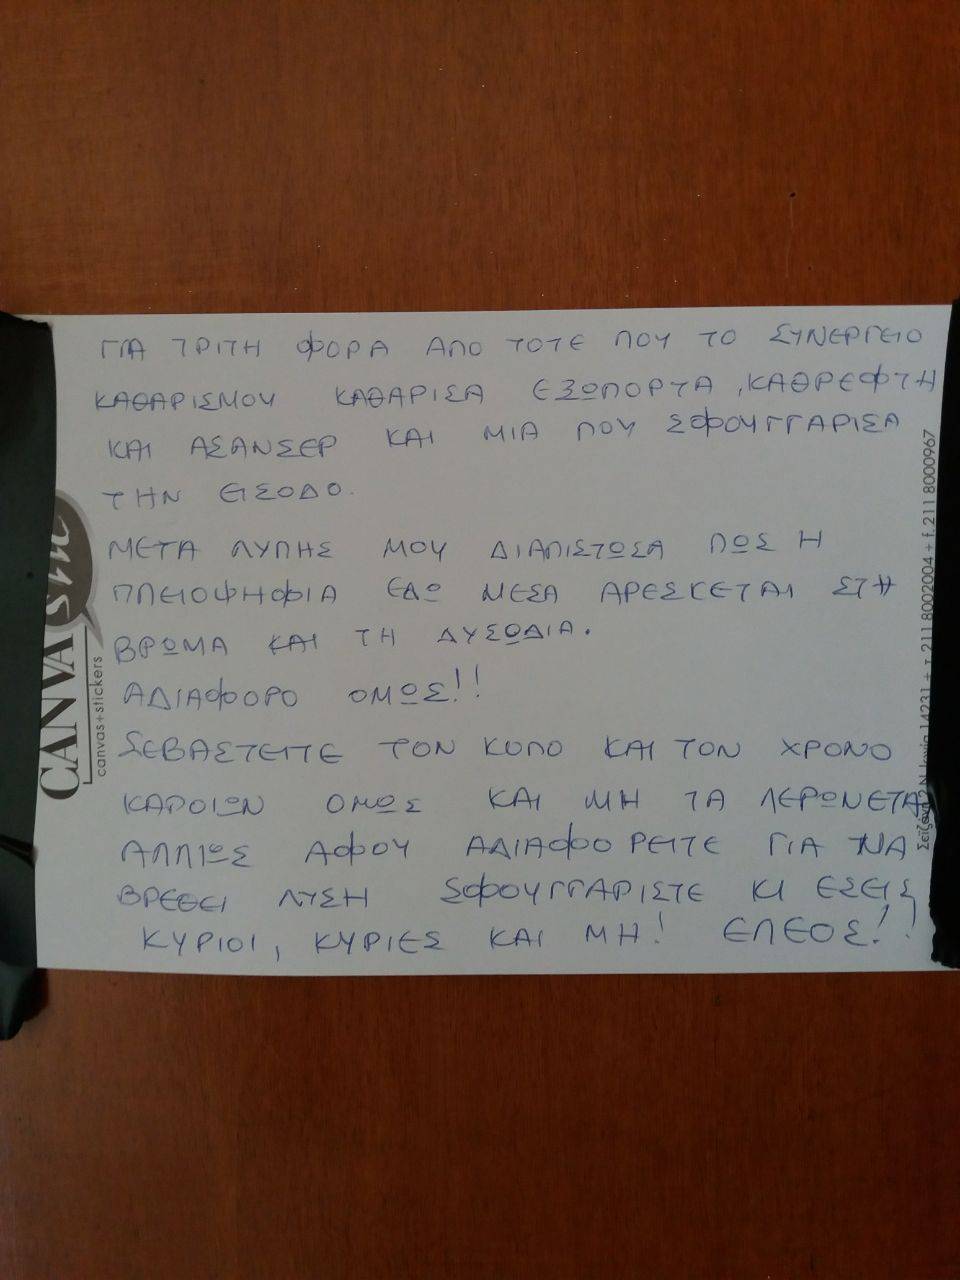 ΓΙΑ ΤΡΙΤΗ ΦΟΡΑ ΑΠΟ ΤΟΤΕ ΠΟΥ ΤΟ ΣΥΝΕΡΓΕΙΟ
ΚΑΘΑΡΙΣΜΟΥ ΚΑΘΑΡΙΣΑ ΕΞΩΠΟΡΤΑ, ΚΑΘΡΕΦΤΗ
ΚΑΙ ΑΣΑΝΣΕΡ ΚΑΙ ΜΙΑ ΠΟΥ ΣΦΟΥΓΓΑΡΙΣΑ
ΤΗΝ ΕΙΣΟΔΟ.
ΜΕΤΑ ΛΥΠΗΣ ΜΟΥ ΔΙΑΠΙΣΤΩΣΑ ΠΩΣ Η
ΠΛΕΙΟΨΗΦΙΑ ΕΔΩ ΜΕΣΑ ΑΡΕΣΚΕΤΑΙ ΣΤΗ
ΒΡΩΜΑ ΚΑΙ ΤΗ ΔΥΣΩΔΙΑ.
ΑΔΙΑΦΟΡΟ ΟΜΩΣ!!
ΣΕΒΑΣΤΕΙΤΕ ΤΟΝ ΚΟΠΟ ΚΑΙ ΤΟΝ ΧΡΟΝΟ
ΚΑΠΟΙΩΝ ΟΜΩΣ ΚΑΙ ΜΗ ΤΑ ΛΕΡΩΝΕΤΑΙ
ΑΛΛΙΩΣ ΑΦΟΥ ΑΔΙΑΦΟΡΕΙΤΕ ΓΙΑ ΝΑ
ΒΡΕΘΕΙ ΛΥΣΗ ΣΦΟΥΓΓΑΡΙΣΤΕ ΚΙ ΕΣΕΙΣ
ΚΥΡΙΟΙ, ΚΥΡΙΕΣ ΚΑΙ ΜΗ! ΕΛΕΟΣ!!
CANVAsme
canvas+stickers
Ν. Ιωνία 14231 + τ. 211 8002004 + f. 211 8000967